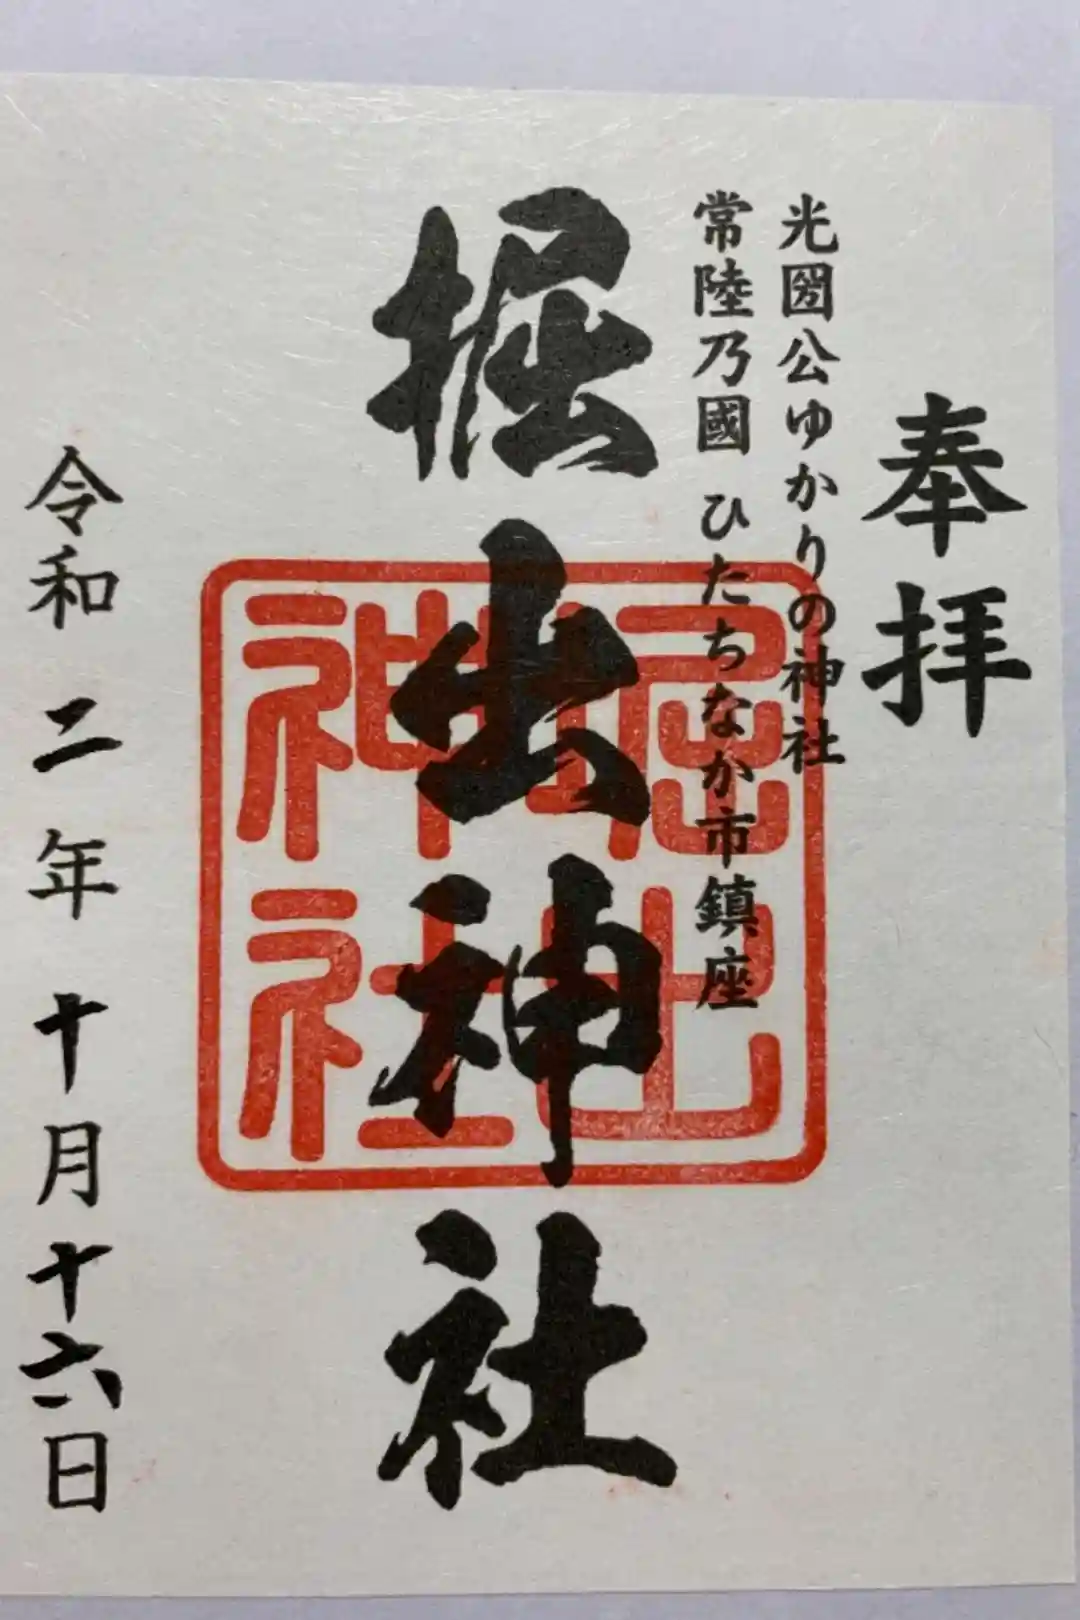 奉拝
光圀公ゆかりの神社
常陸乃國 ひたちなか市鎮座
掘出神社
掘出
神社
令和二年十月十六日